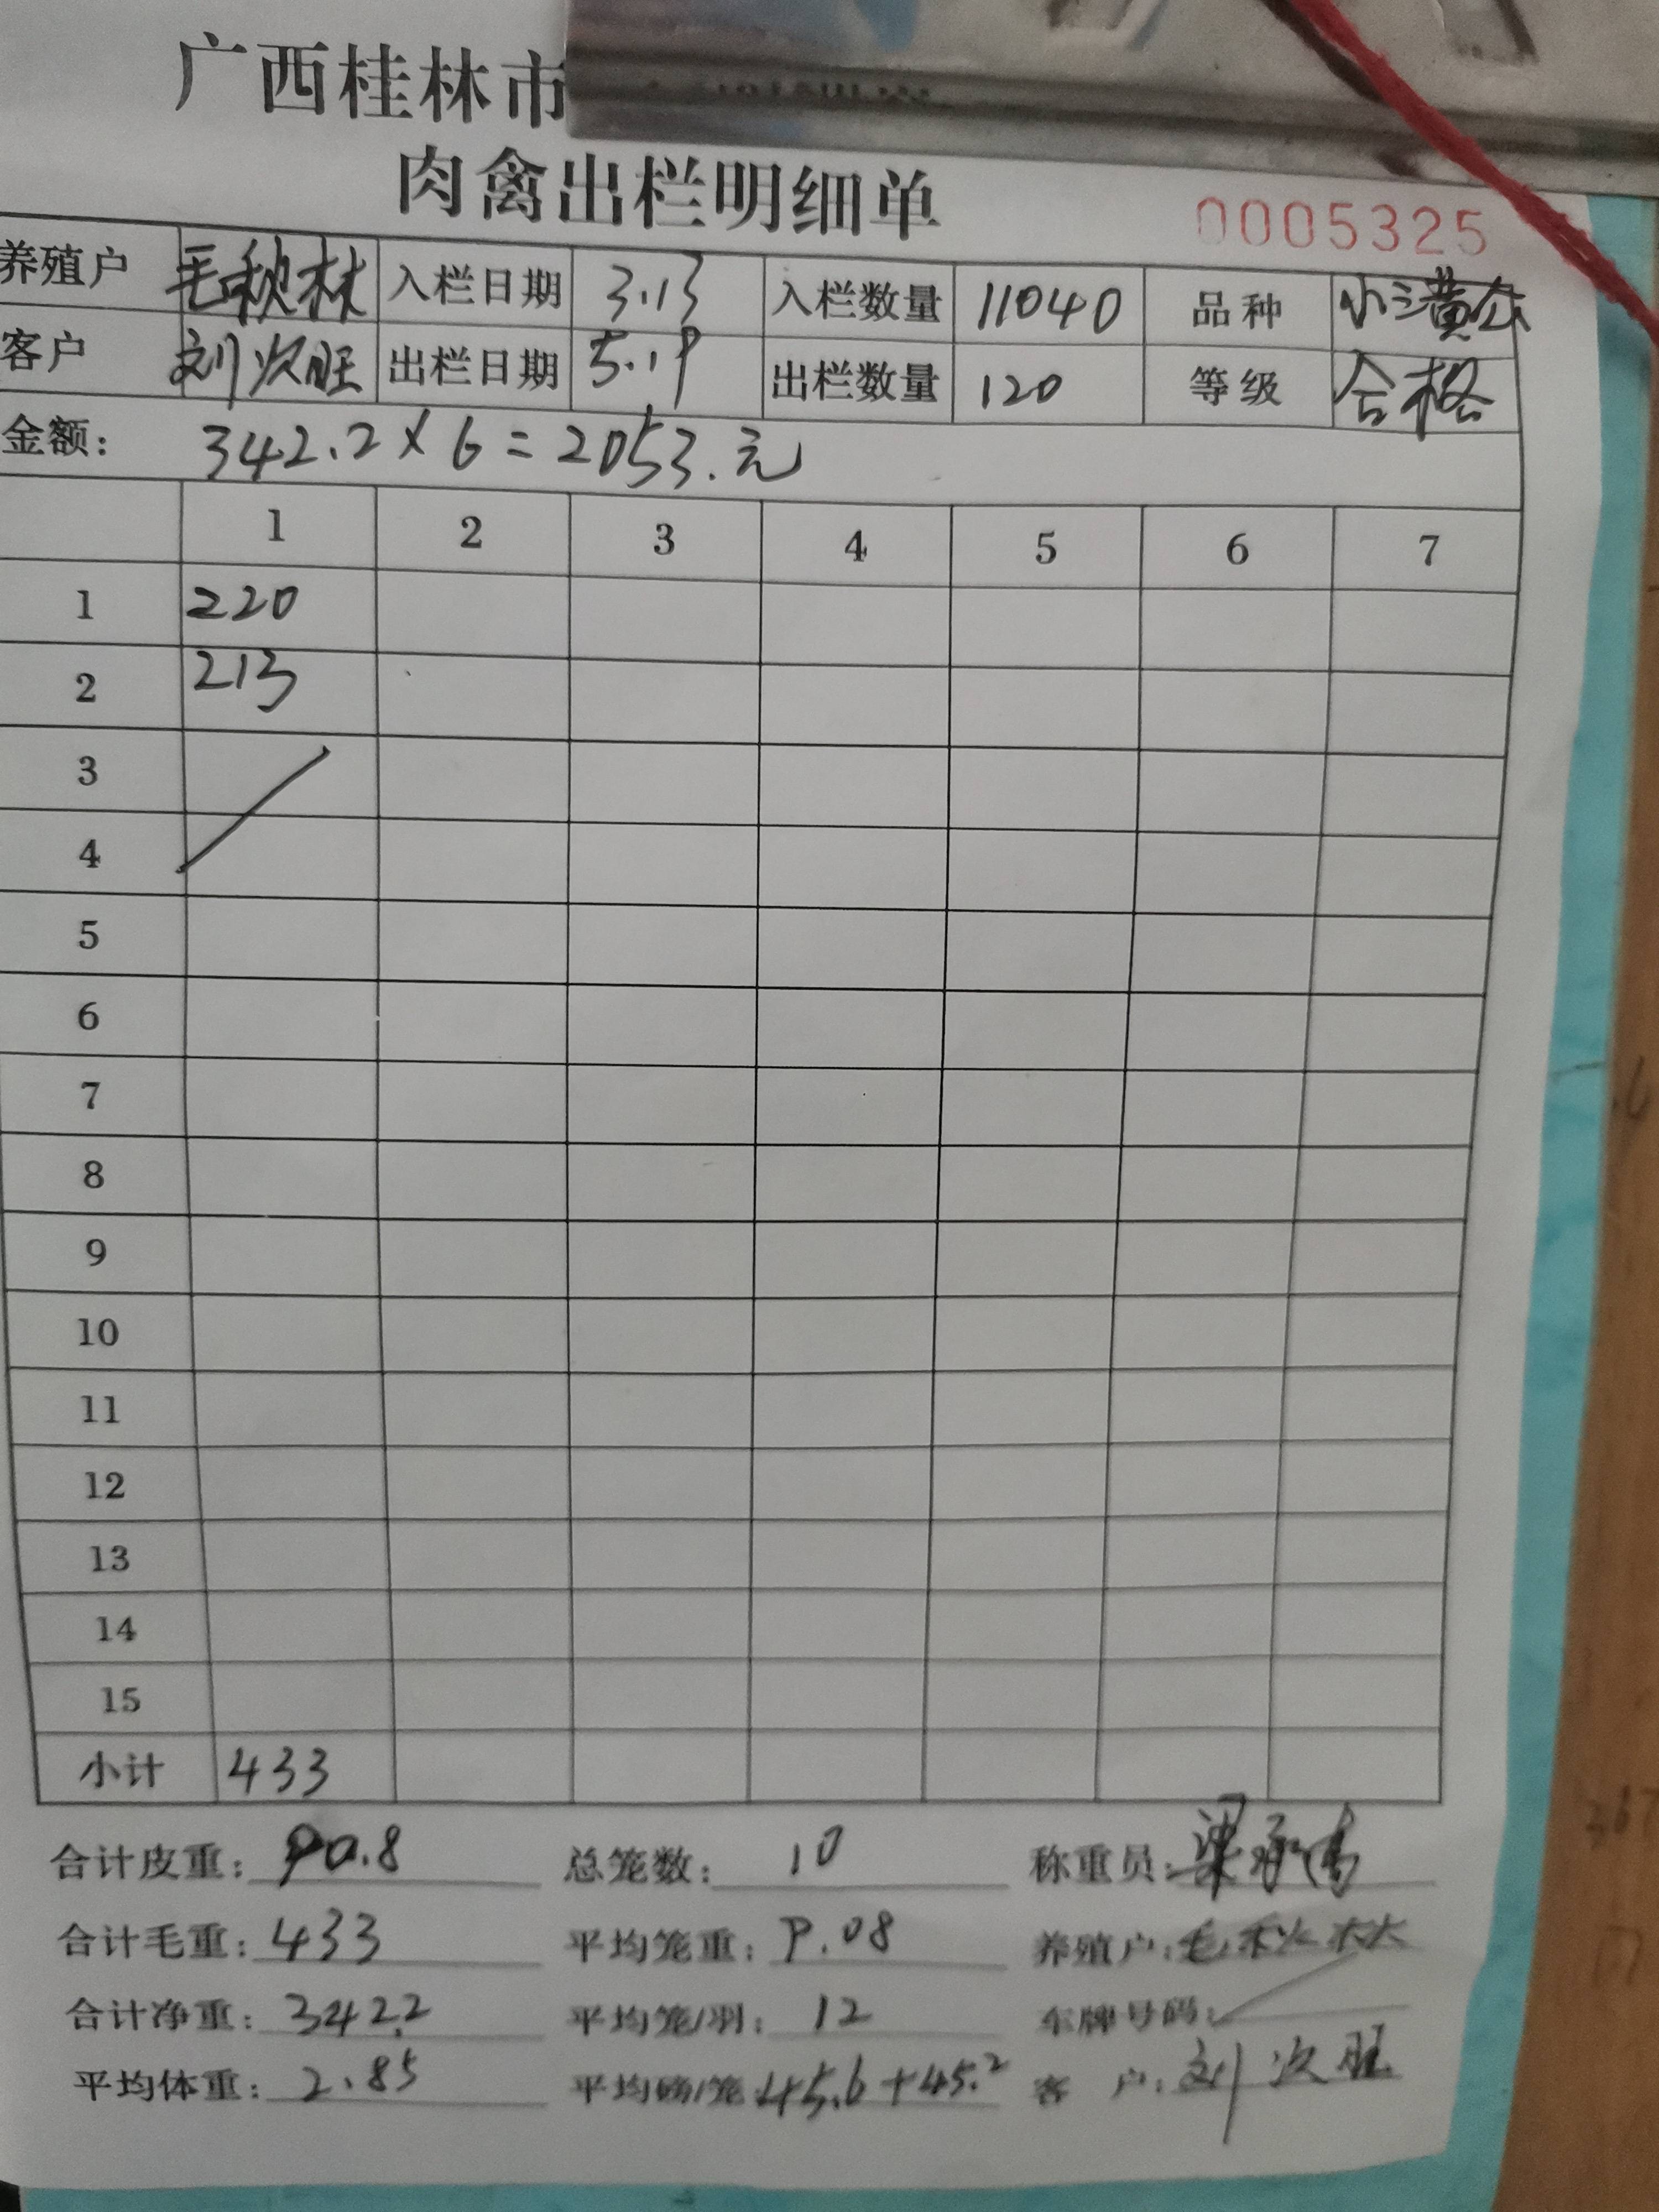 广西桂林市
肉禽出栏明细单
0005325
养殖户 毛秋林 入栏日期 3.13 入栏数量 11040 品种 小三黄公
客户 刘次旺 出栏日期 5.19 出栏数量 120 等级 合格
金额: 342.2×6=2053.元
1 2 3 4 5 6 7
1 220
2 213
3
4
5
6
7
8
9
10
11
12
13
14
15
小计 433
合计皮重: 90.8 总笼数: 10 称重员: 梁
合计毛重: 433 平均笼重: 9.08 养殖户: 毛秋林
合计净重: 342.2 平均笼/羽: 12 车牌号码:
平均体重: 2.85 平均磅/笼 45.6+45.2 客户: 刘次旺